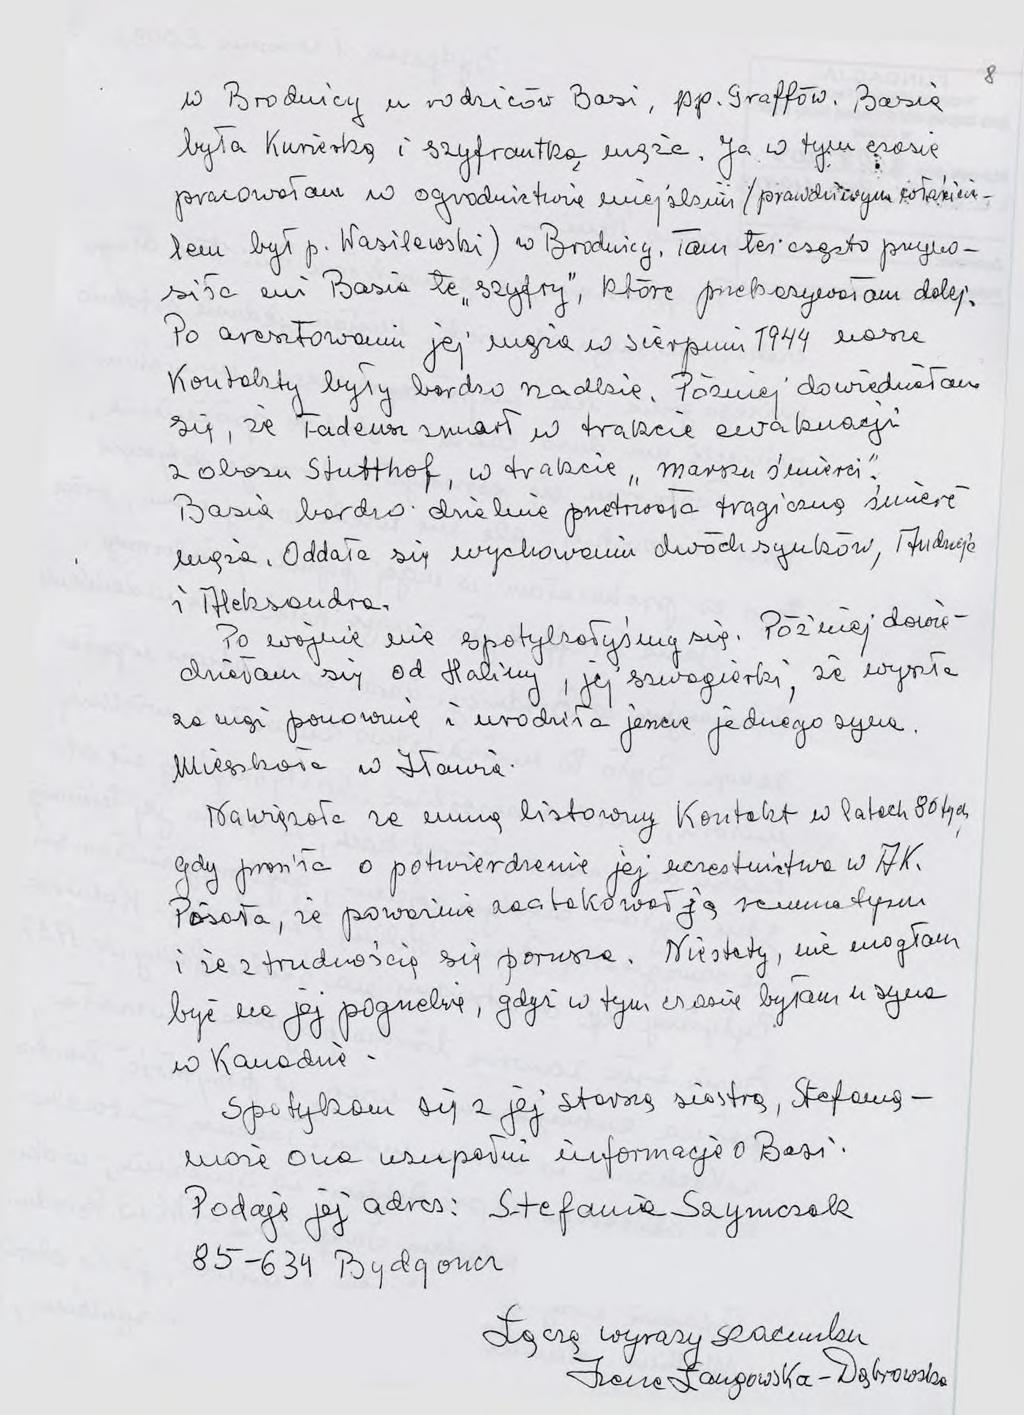 8
w Brodnicy u rodziców Basi, pp. Graffów. Basia
była Kurierką i szyfrantką męża. Ja w tym czasie
pracowałam w ogrodnictwie miejskim (prawdziwym właścicie-
lem był p. Wasilewski) w Brodnicy. Tam też często przyno-
siła mi Basia te „szyfry", które przekazywałam dalej.
Po aresztowaniu jej męża w sierpniu 1944 nasze
Kontakty były bardzo rzadkie. Później dowiedziałam
się, że Tadeusz zmarł w trakcie ewakuacji
z obozu Stutthof, w trakcie „marszu śmierci".
Basia bardzo dzielnie przetrwała tragiczną śmierć
męża. Oddała się wychowaniu dwóch synków, Andrzeja
i Aleksandra.
Po wojnie nie spotykałyśmy się. Później dowie-
działam się od Haliny, jej szwagierki, że wyszła
za mąż ponownie i urodziła jeszcze jednego syna.
Mieszkała w Iławie.
Nawiązała ze mną listowny Kontakt w latach 80tych,
gdy prosiła o potwierdzenie jej uczestnictwa w AK.
Pisała, że poważnie zaatakował ją reumatyzm
i że z trudnością się porusza. Niestety, nie mogłam
być na jej pogrzebie, gdyż w tym czasie byłam u syna
w Kanadzie.
Spotykam się z jej starszą siostrą, Stefanią –
może ona uzupełni informacje o Basi.
Podaję jej adres: Stefania Szymczak
85-634 Bydgoszcz
Łączę wyrazy szacunku
Irena Langowska-Dąbrowska